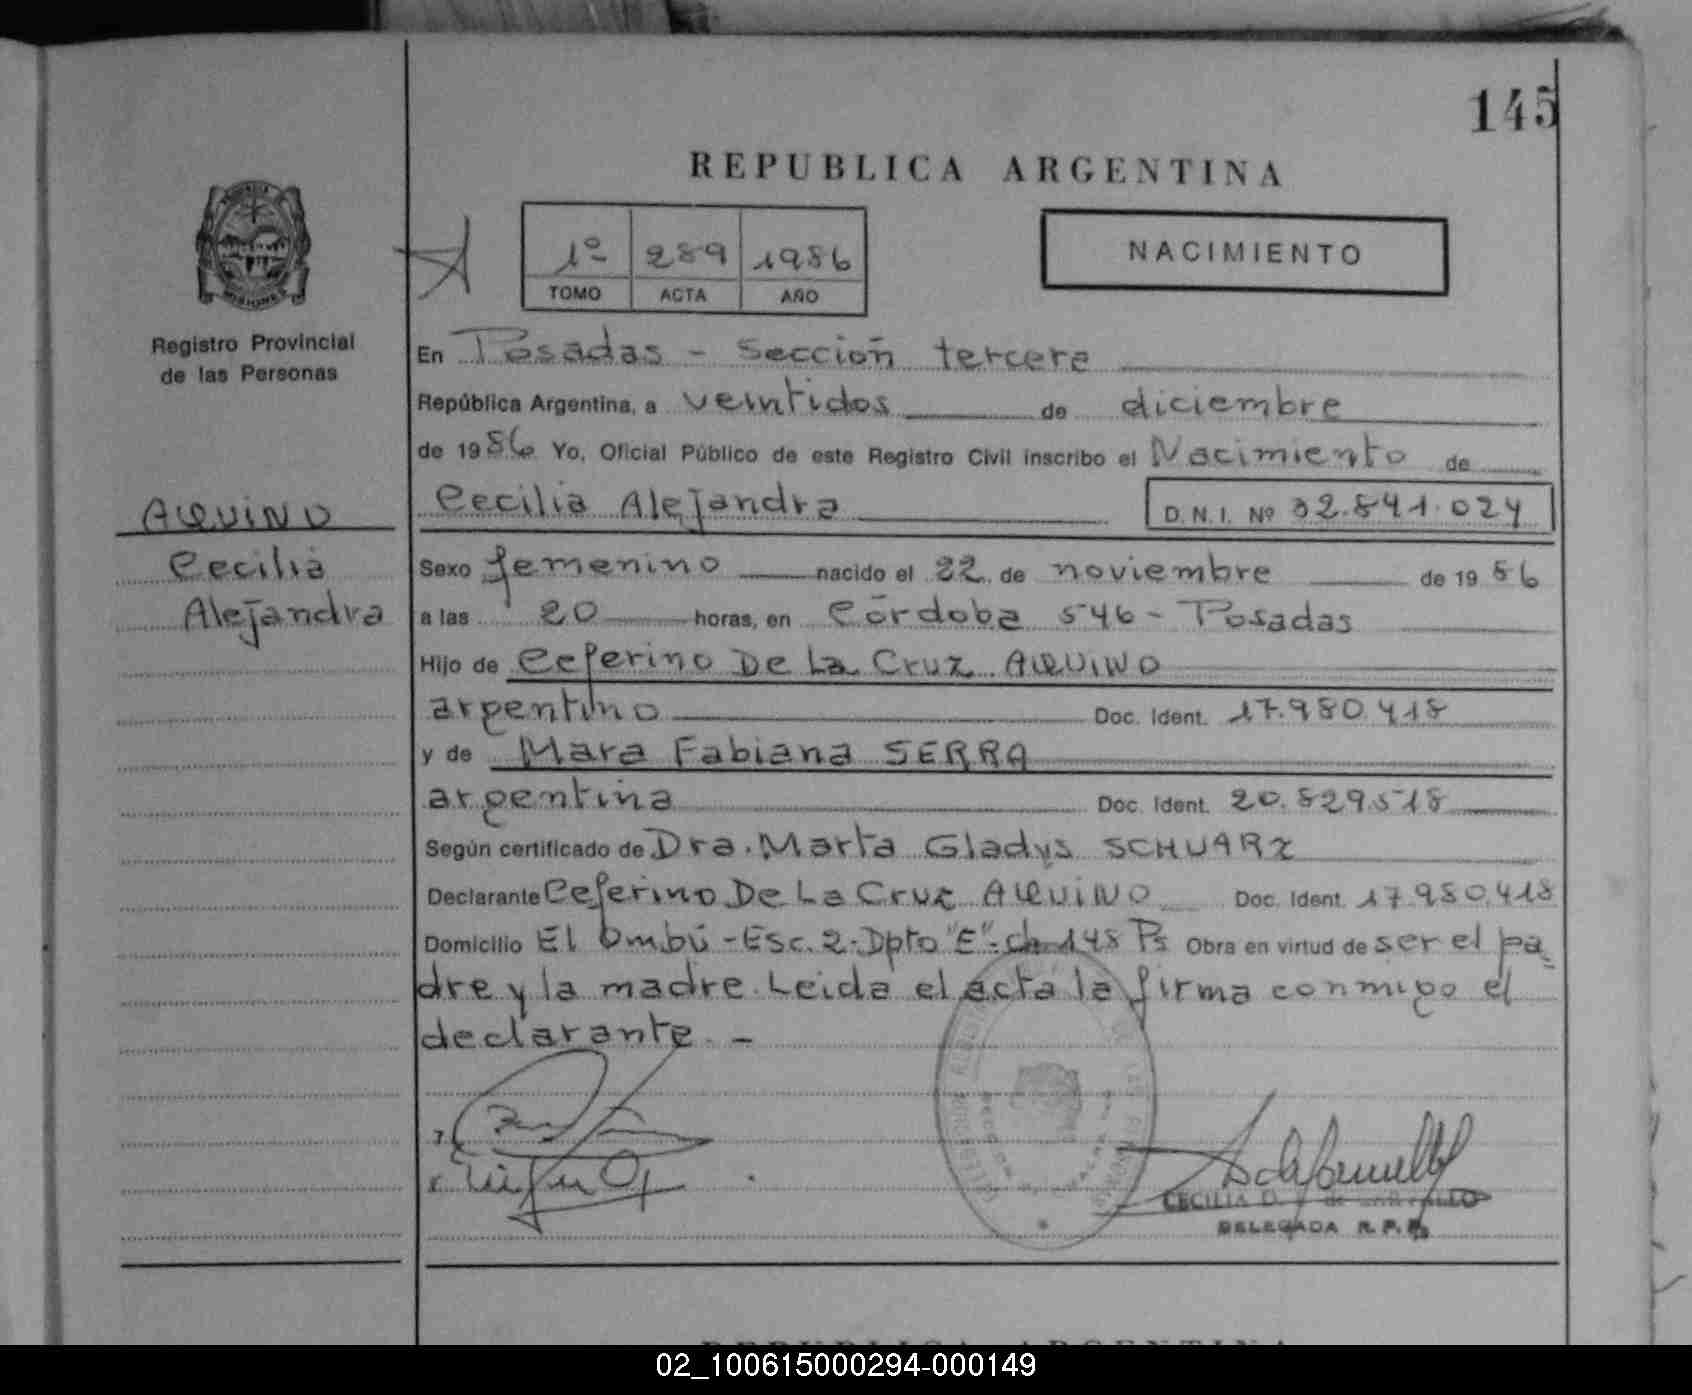 145
REPUBLICA ARGENTINA
1º 289 1986
TOMO ACTA AÑO
NACIMIENTO
Registro Provincial
de las Personas
En Posadas - Sección tercera
República Argentina, a veintidos de diciembre
de 1986 Yo, Oficial Público de este Registro Civil inscribo el Nacimiento de
AQUINO
Cecilia
Alejandra
Cecilia Alejandra D.N.I. Nº 32.841.024
Sexo femenino nacido el 22 de noviembre de 1986
a las 20 horas, en Córdoba 546 - Posadas
Hijo de Ceferino De La Cruz AQUINO
argentino Doc. Ident. 17.980.418
y de Mara Fabiana SERRA
argentina Doc. Ident. 20.829.518
Según certificado de Dra. Marta Gladys SCHUARZ
Declarante Ceferino De La Cruz AQUINO Doc. Ident. 17.980.418
Domicilio El Ombú - Esc. 2 - Dpto "E" - Ch. 148 Ps Obra en virtud de ser el pa-
dre y la madre. Leida el acta la firma conmigo el
declarante. -
CECILIA D.
DELEGADA R.P.P.
REPUBLICA ARGENTINA
02_100615000294-000149